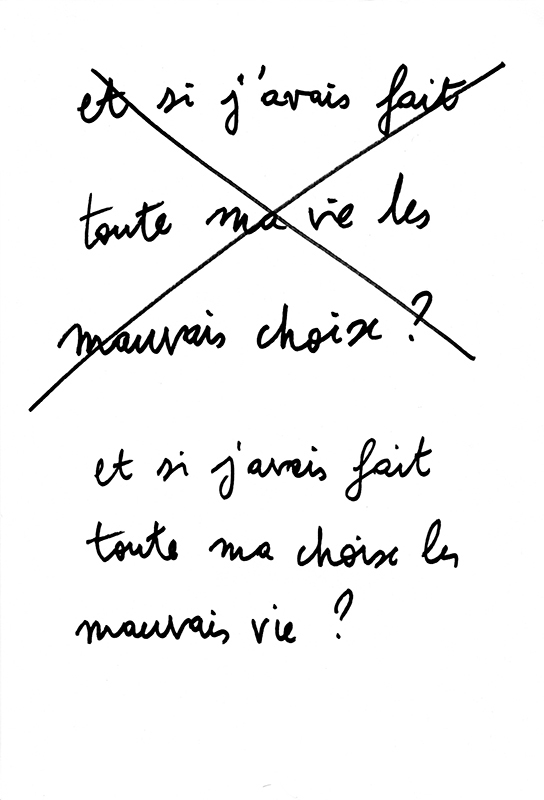 et si j'avais fait
toute ma vie les
mauvais choix ?
et si j'avais fait
toute ma choix les
mauvais vie ?